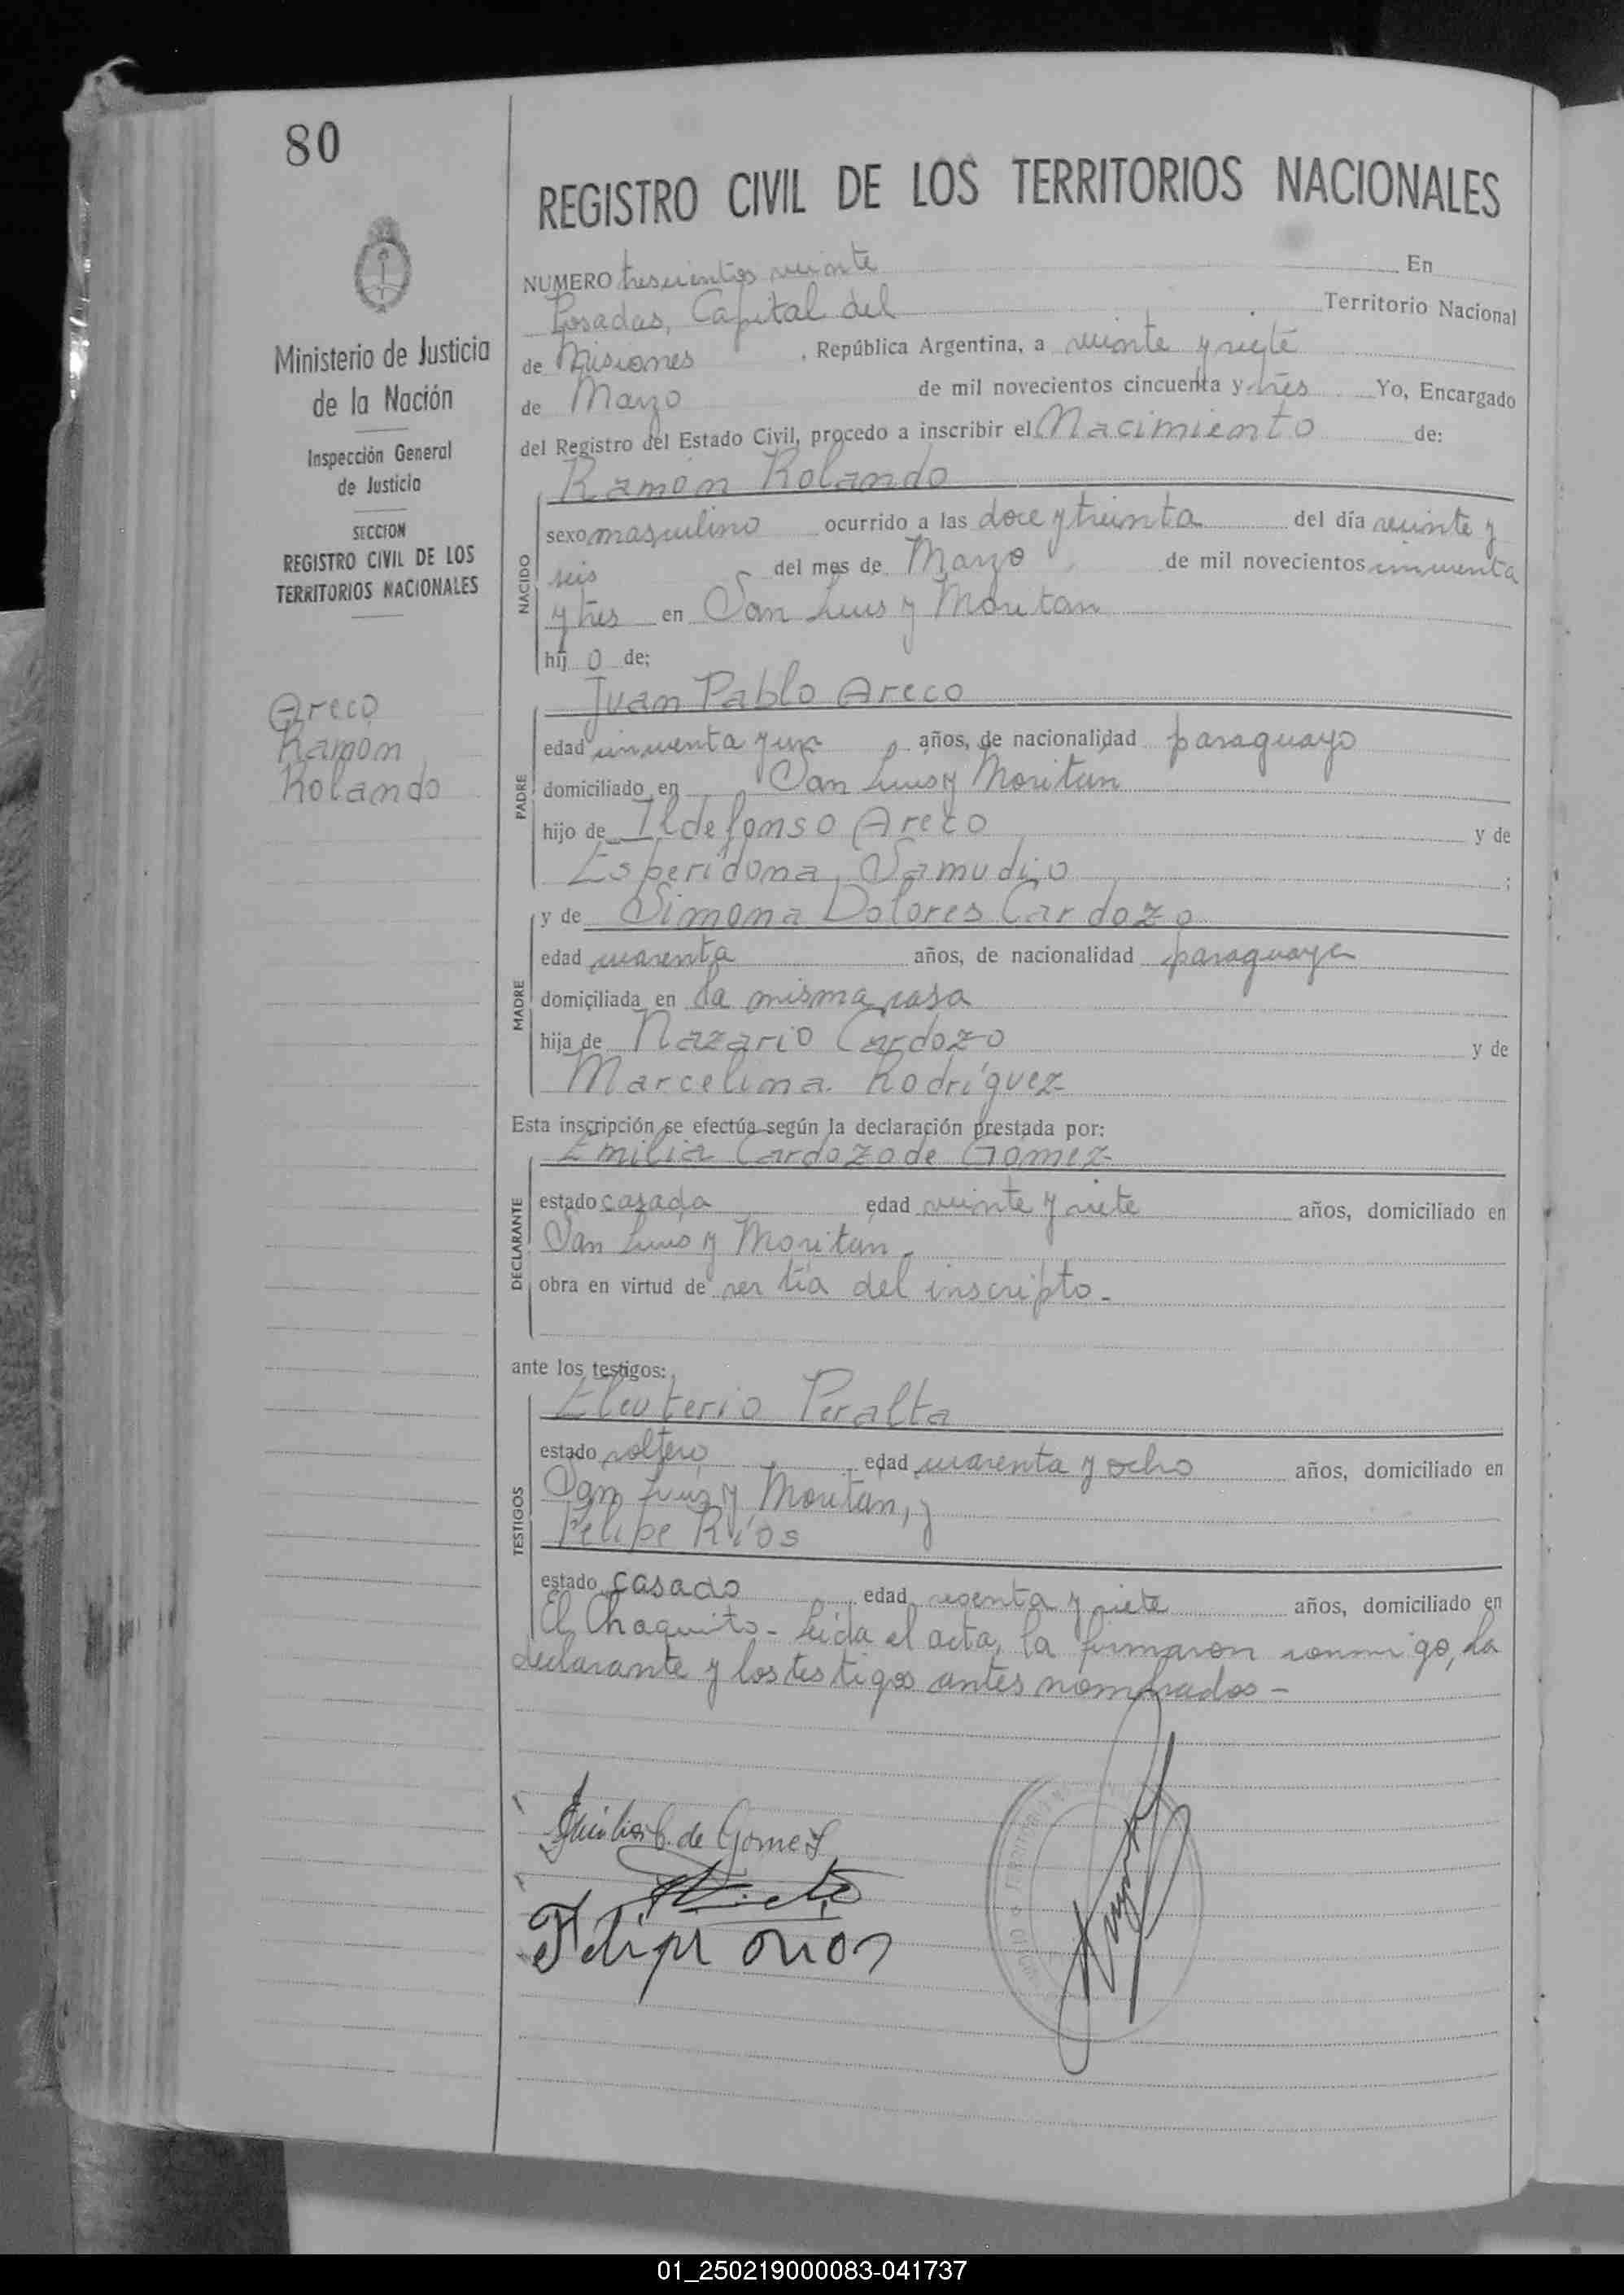 80
REGISTRO CIVIL DE LOS TERRITORIOS NACIONALES
Ministerio de Justicia
de la Nación
Inspección General
de Justicia
SECCION
REGISTRO CIVIL DE LOS
TERRITORIOS NACIONALES
Areco
Ramón
Rolando
NUMERO trescientos veinte En
Posadas, Capital del Territorio Nacional
de Misiones, República Argentina, a veinte y siete
de Marzo de mil novecientos cincuenta y tres Yo, Encargado
del Registro del Estado Civil, procedo a inscribir el Nacimiento de:
Ramón Rolando
NACIDO
sexo masculino ocurrido a las doce y treinta del día veinte y
seis del mes de Marzo de mil novecientos cincuenta
y tres en San Luis y Moritan
hij o de:
Juan Pablo Areco
PADRE
edad cincuenta y un años, de nacionalidad paraguayo
domiciliado en San Luis y Moritan
hijo de Ildefonso Areco y de
Esperidona Samudio ;
y de Simona Dolores Cardozo
MADRE
edad cuarenta años, de nacionalidad paraguaya
domiciliada en la misma casa
hija de Nazario Cardozo y de
Marcelina Rodríguez
Esta inscripción se efectúa según la declaración prestada por:
Emilia Cardozo de Gómez
DECLARANTE
estado casada edad veinte y siete años, domiciliado en
San Luis y Moritan.
obra en virtud de ser tía del inscripto.-
ante los testigos:
Eleuterio Peralta
TESTIGOS
estado soltero edad cuarenta y ocho años, domiciliado en
San Luis y Moritan, y
Felipe Ríos
estado casado edad sesenta y siete años, domiciliado en
El Chaquito- Leida el acta, la firmaron conmigo, la
declarante y los testigos antes nombrados-
C. de Gomez
01_250219000083-041737